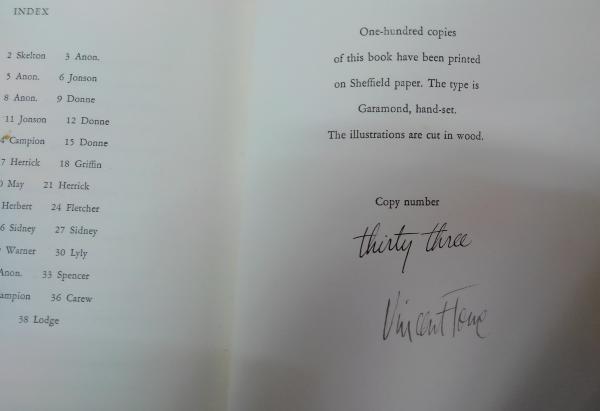 INDEX
2 Skelton 3 Anon.
5 Anon. 6 Jonson
8 Anon. 9 Donne
11 Jonson 12 Donne
4 Campion 15 Donne
7 Herrick 18 Griffin
0 May 21 Herrick
Herbert 24 Fletcher
6 Sidney 27 Sidney
Warner 30 Lyly
Anon. 33 Spencer
ampion 36 Carew
38 Lodge
One-hundred copies
of this book have been printed
on Sheffield paper. The type is
Garamond, hand-set.
The illustrations are cut in wood.
Copy number
thirty three
Vincent Torre